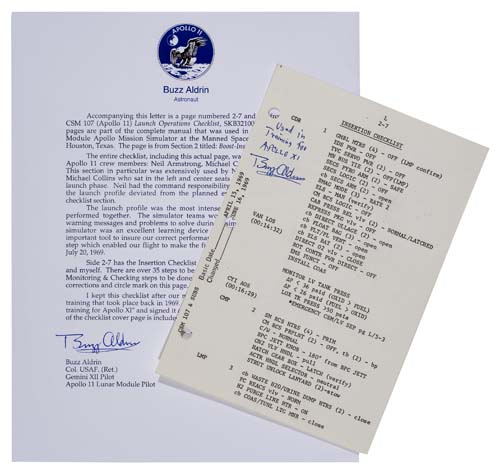 APOLLO 11
Buzz Aldrin
Astronaut
Accompanying this letter is a page numbered 2-7 and
CSM 107 (Apollo 11) Launch Operations Checklist, SKB32100
pages are part of the complete manual that was used in
Module Apollo Mission Simulator at the Manned Space
Houston, Texas. The page is from Section 2 titled: Boost-Inse
The entire checklist, including this actual page, was
Apollo 11 crew members: Neil Armstrong, Michael Colli
This section in particular was extensively used by N
Michael Collins who sat in the left and center seats
launch phase. Neil had the command responsibility
the launch profile deviated from the planned e
checklist section.
The launch profile was the most intense
performed together. The simulator teams wo
warning messages and problems to solve durin
simulator was an excellent learning device
important tool to insure our correct performa
step which enabled our flight to make the fi
July 20, 1969.
Side 2-7 has the Insertion Checklist
and myself. There are over 35 steps to be
Monitoring & Checking steps to be done
corrections and circle mark on this page.
I kept this checklist after our
training that took place back in 1969.
training for Apollo XI" and signed it
of the checklist cover page is include
Buzz Aldrin
Buzz Aldrin
Col. USAF. (Ret.)
Gemini XII Pilot
Apollo 11 Lunar Module Pilot
L
2-7
INSERTION CHECKLIST
CDR
1
GMBL MTRS (4) - OFF (LMP confirm)
EDS PWR - OFF
TVC SERVO PWR (2) - OFF
MN BUS TIE (2) - OFF
SECS PYRO ARM (2) - SAFE
ELS - MAN (verify)
Used in
Training for
APOLLO XI
Buzz Aldrin
VAN LOS
(00:16:32)
DIRECT O2 vlv - CLOSE
ROT CONTR PWR DIRECT - OFF
EMS FUNC - OFF
INSTALL COAS
MONITOR LV TANK PRESS
ΔP < 36 psid (OXID > FUEL)
ΔP < 26 psid (FUEL > OXID)
*EMERGENCY CSM/LV SEP pg L/5-3
CYI AOS
(00:16:29)
CMP
2
SM RCS HTRS (4) - PRIM
CM RCS PRPLNT (2) - OFF, tb (2) - bp
C/W - NORMAL
GN2 ISO HNDL - pull
HATCH GEAR BOX - LATCH (verify)
ACTR HNDL SELECTOR - neutral
STRUT UNLOCK LANYARD (2)-stow
LMP
3
cb WASTE H2O/URINE DUMP HTRS (2) - close
FC REACS vlv - NORM
H2 PURGE LINE HTR - ON
cb COAS/TUNL LTG MNB - close
CSM 107 & SUBS
Basic Date APRIL 15, 1969
Changed JUNE 16, 1969